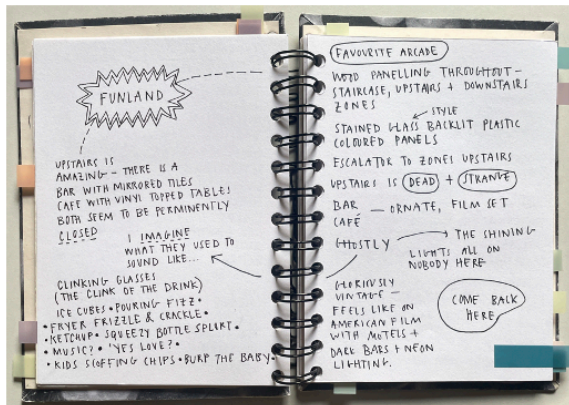 FUNLAND
UPSTAIRS IS
AMAZING – THERE IS A
BAR WITH MIRRORED TILES
CAFE WITH VINYL TOPPED TABLES
BOTH SEEM TO BE PERMINENTLY
CLOSED
I IMAGINE
WHAT THEY USED TO
SOUND LIKE...
CLINKING GLASSES
(THE CLINK OF THE DRINK)
ICE CUBES • POURING FIZZ •
• FRYER FRIZZLE & CRACKLE •
• KETCHUP • SQUEEZY BOTTLE SPLURT •
• MUSIC? • 'YES LOVE?' •
• KIDS SCOFFING CHIPS • BURP THE BABY •
FAVOURITE ARCADE
WOOD PANELLING THROUGHOUT –
STAIRCASE, UPSTAIRS + DOWNSTAIRS
ZONES
STYLE
STAINED GLASS BACKLIT PLASTIC
COLOURED PANELS
ESCALATOR TO ZONES UPSTAIRS
UPSTAIRS IS DEAD + STRANGE
BAR
CAFÉ – ORNATE, FILM SET
GHOSTLY → THE SHINING
LIGHTS ALL ON
NOBODY HERE
GLORIOUSLY
VINTAGE –
FEELS LIKE AN
AMERICAN FILM
WITH MOTELS +
DARK BARS + NEON
LIGHTING.
COME BACK
HERE